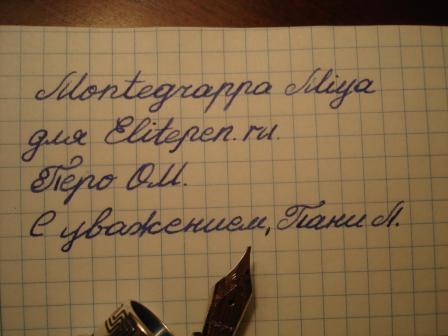 Montegrappa Miya
для Elitepen.ru.
Перо OM.
С уважением, Пани М.